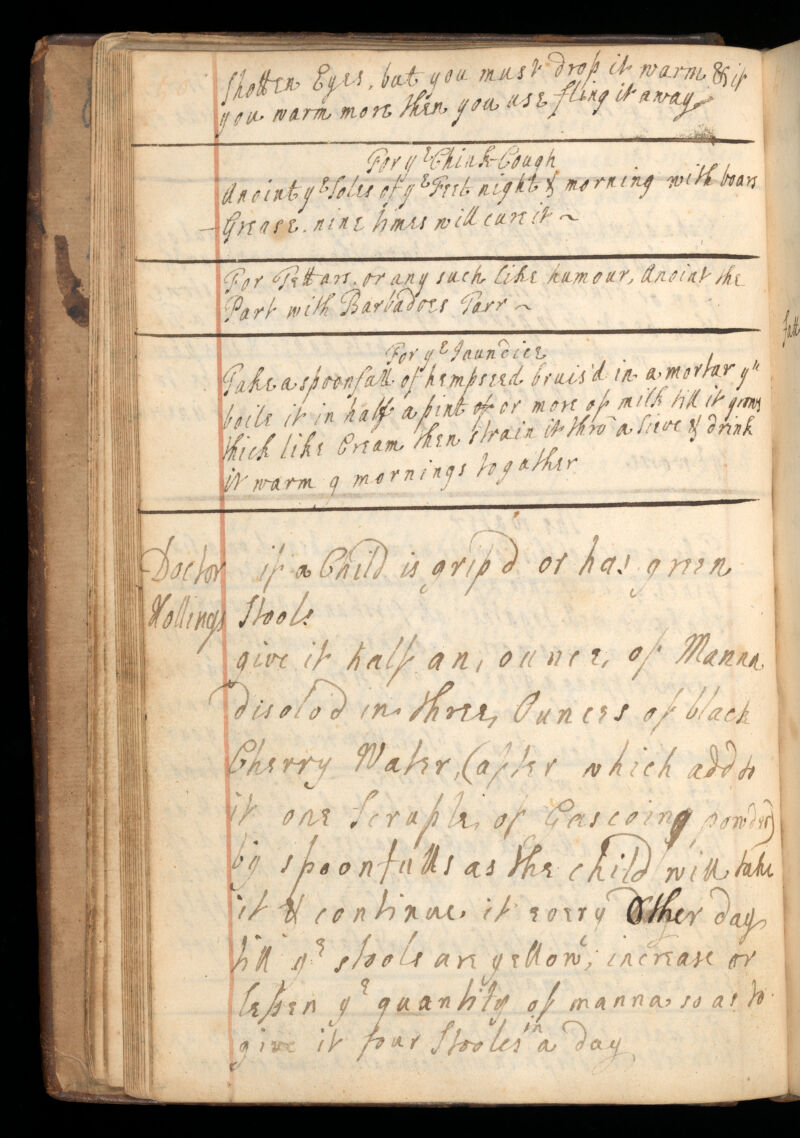 Shotten Eyes, but you must drop it warm & if
you warm more then you use fling it away
For yᵉ Chink Cough
Anoint yᵉ Soles of yᵉ Feet night & morning with boars
Grease. nine times will cure it ~
For Tettars, or any such like humour, Anoint the
Part with Barbadoes Tarr ~
For yᵉ Jaundice
Take a spoonfull of hempseed bruis'd in a mortar yⁿ
boile it in half a pint of or more of milk till it grows
thick like Cream then strain it thro' a Sieve & drink
it warm 9 mornings togather
Doctor Hollings
if a Child is grip'd or has green
Stools
give it half an, ounce, of Manna
disolv'd in three, Ounces of black
Cherry Water, (after which add to
it one Scruple, of Gascoing powder)
by spoonfulls as the child will take
it & continue it every Other day
till yᵉ stools are yellow, increase or
leßen yᵉ quantity of manna so as to
give it four Stooles in a day